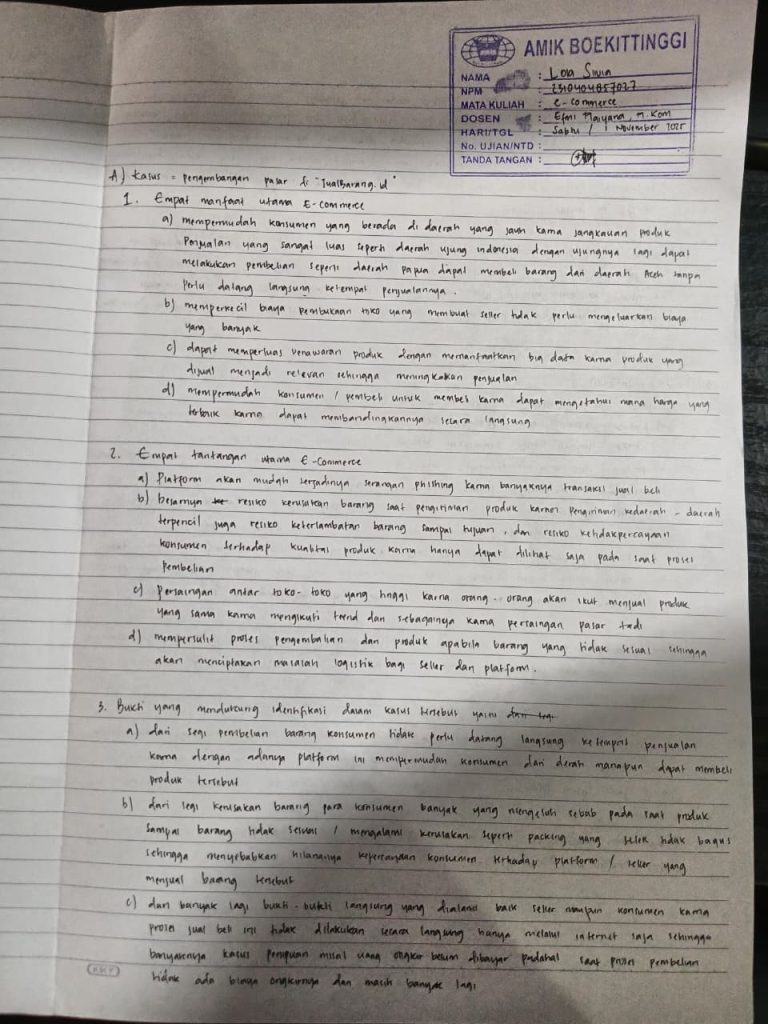 AMIK BOEKITTINGGI
NAMA : Lola Silvia
NPM : 23104048570
MATA KULIAH : e-commerce
DOSEN : Efmi Maiyana, M.Kom
HARI/TGL : Sabtu / 1 November 2025
No. UJIAN/NTD :
TANDA TANGAN :
A) Kasus = pengembangan pasar di "JualBarang.id"
1. Empat manfaat utama E-Commerce
a) mempermudah konsumen yang berada di daerah yang jauh karna jangkauan produk
Penjualan yang sangat luas seperti daerah ujung indonesia dengan ujungnya lagi dapat
melakukan pembelian seperti daerah papua dapat membeli barang dari daerah Aceh tanpa
perlu datang langsung ketempat penjualannya.
b) memperkecil biaya pembukaan toko yang membuat seller tidak perlu mengeluarkan biaya
yang banyak
c) dapat memperluas penawaran produk dengan memanfaatkan big data karna produk yang
dijual menjadi relevan sehingga meningkakan penjualan
d) mempermudah konsumen / pembeli untuk membeli karna dapat mengetahui mana harga yang
terbaik karna dapat membandingkannya secara langsung
2. Empat tantangan utama E-Commerce
a) Platform akan mudah terjadinya serangan phishing karna banyaknya transaksi jual beli
b) besarnya resiko kerusakan barang saat pengiriman produk karna pengiriman kedaerah - daerah
terpencil juga resiko keterlambatan barang sampai tujuan, dan resiko ketidakpercayaan
konsumen terhadap kualitas produk karna hanya dapat dilihat saja pada saat proses
Pembelian
c) Persaingan antar toko-toko yang tinggi karna orang-orang akan ikut menjual produk
yang sama karna mengikuti trend dan sebagainya karna persaingan pasar tadi
d) mempersulit proses pengembalian dan produk apabila barang yang tidak sesuai sehingga
akan menciptakan masalah logistik bagi seller dan platform.
3. Bukti yang mendukung identifikasi dalam kasus tersebut yaitu dari segi
a) dari segi pembelian barang konsumen tidak perlu datang langsung ke tempat penjualan
karna dengan adanya platform ini mempermudah konsumen dari derah manapun dapat membeli
produk tersebut
b) dari segi kerusakan barang para konsumen banyak yang mengeluh sebab pada saat produk
sampai barang tidak sesuai / mengalami kerusakan seperti packing yang tidak bagus
sehingga menyebabkan hilangnya kepercayaan konsumen terhadap platform / seller yang
menjual barang tersebut
c) dan banyak lagi bukti-bukti langsung yang dialami baik seller maupun konsumen karna
proses jual beli ini tidak dilakukan secara langsung hanya melalui internet saja sehingga
banyaknya kasus penipuan misal uang ongkir belum dibayar padahal saat proses pembelian
tidak ada biaya ongkirnya dan masih banyak lagi
KKY